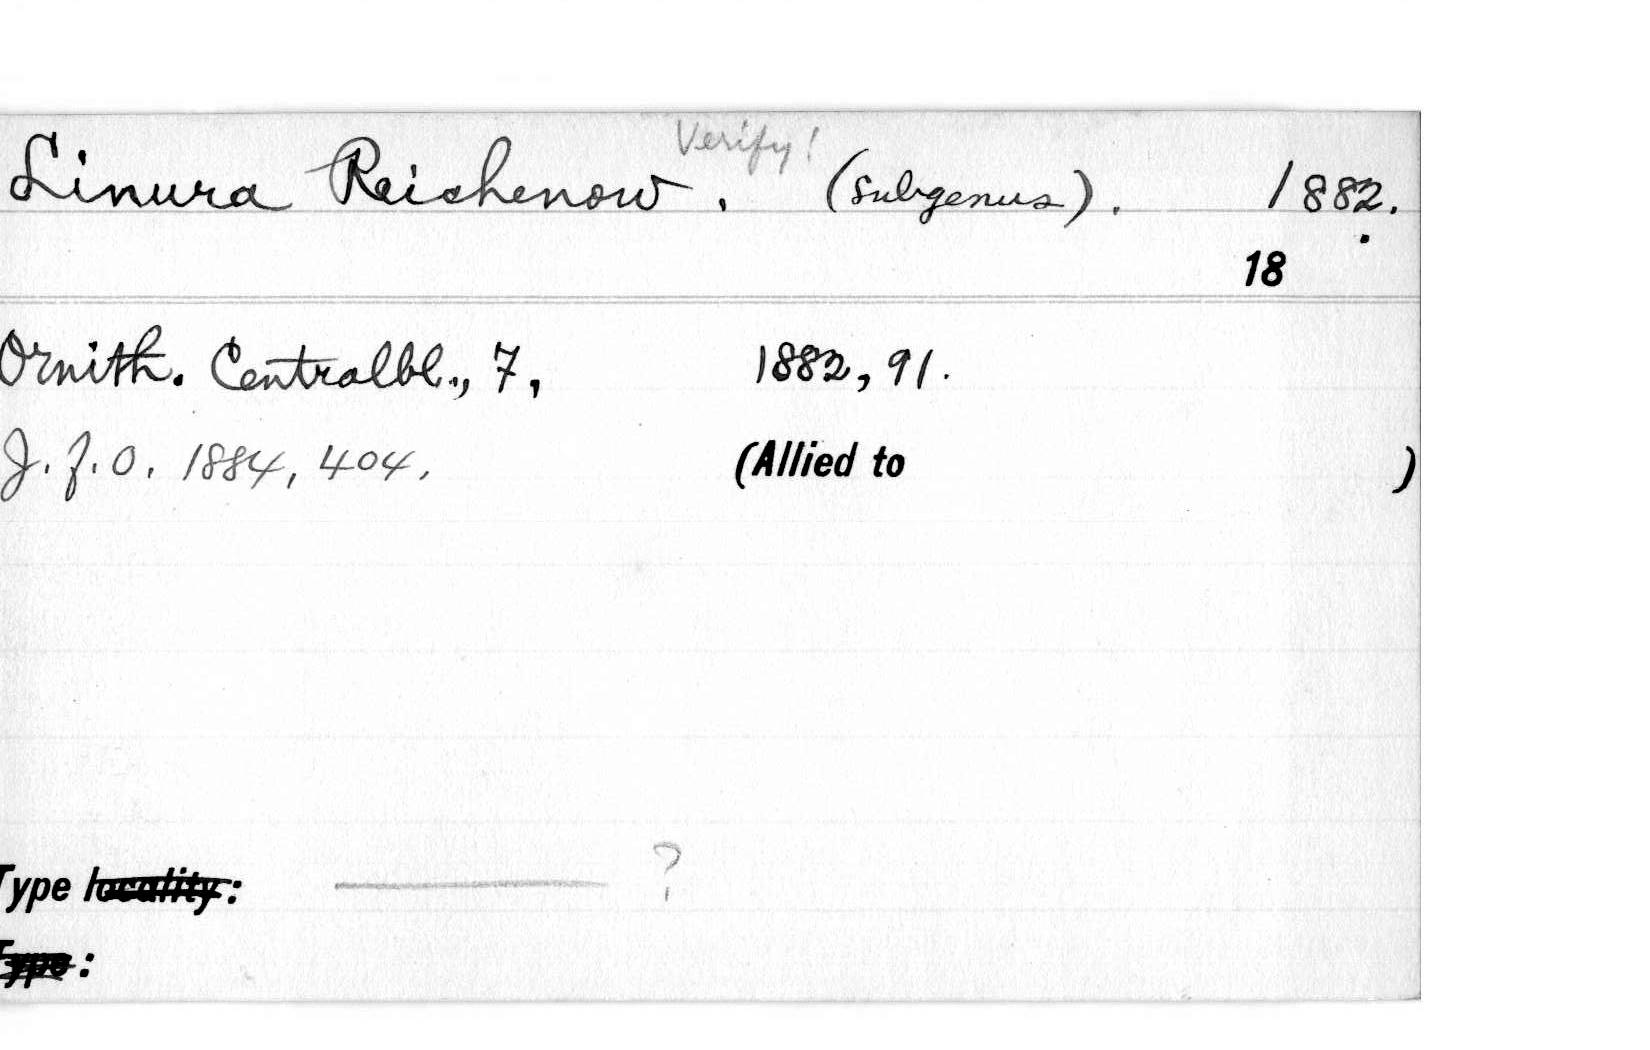 Verify!
Linura Reichenow. (subgenus). 1882.
18
Ornith. Centralbl., 7, 1882, 91.
J. f. O. 1884, 404. (Allied to )
Type locality: ?
Type: